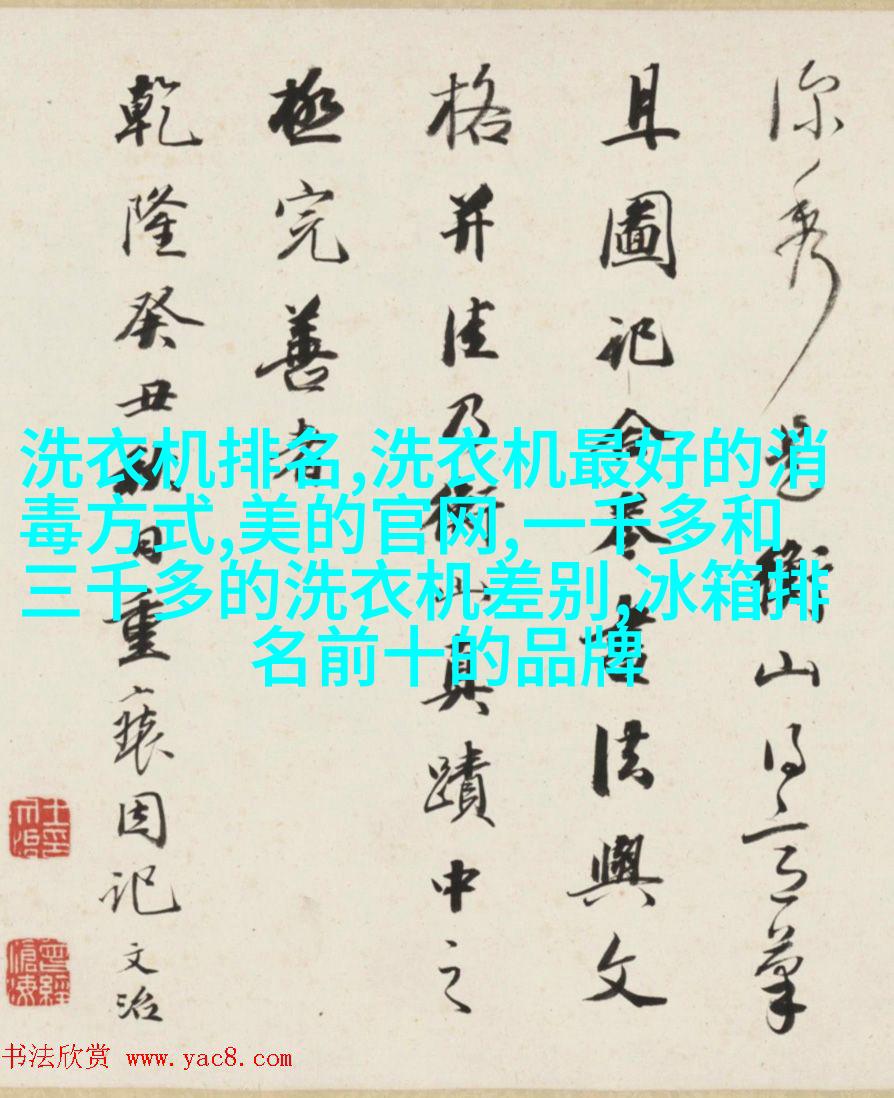 深秀
是衡山得意筆
且圖記
法與文
格并佳乃衡山真蹟中之
極完善者
乾隆癸丑秋日重裝因記
文治
洗衣机排名,洗衣机最好的消
毒方式,美的官网,一千多和
三千多的洗衣机差别,冰箱排
名前十的品牌
书法欣赏 www.yac8.com